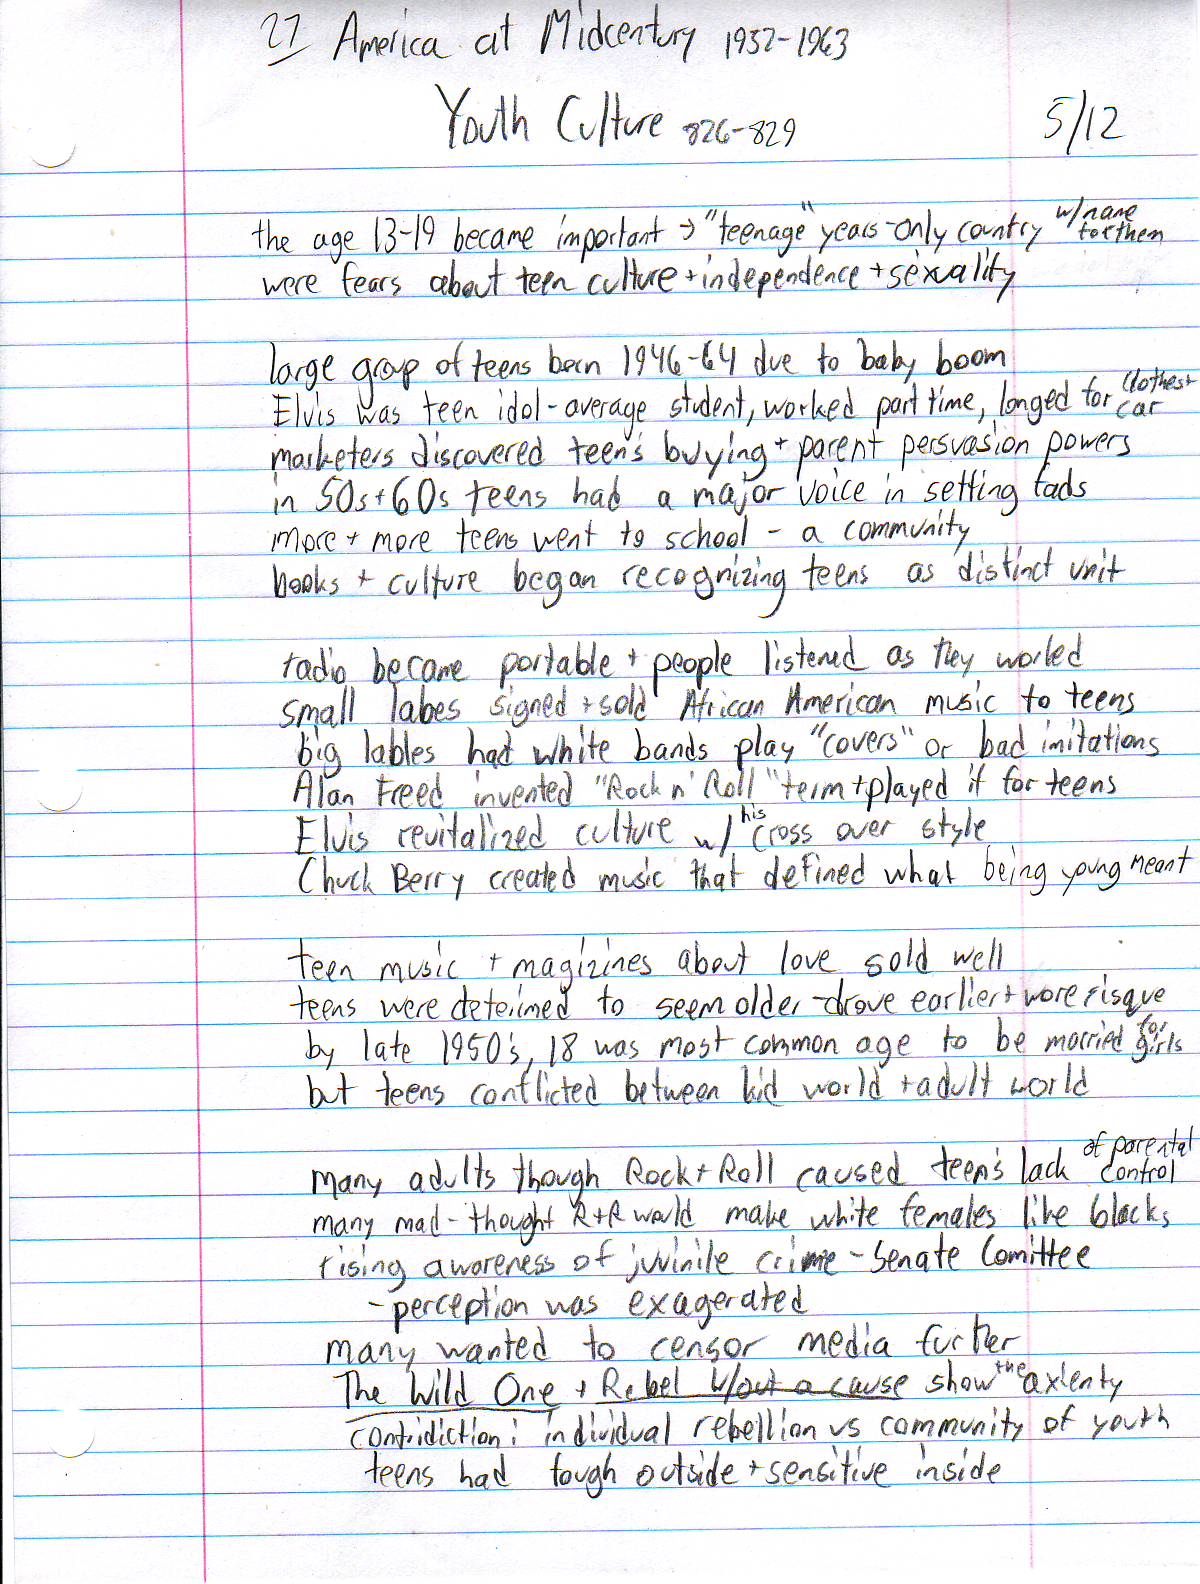 27 America at Midcentury 1952-1963
Youth Culture 826-829 5/12
the age 13-19 became important → "teenage" years - only country w/name for them
were fears about teen culture + independence + sexuality
large group of teens born 1946-64 due to baby boom
Elvis was teen idol - average student, worked part time, longed for clothes + car
marketers discovered teen's buying + parent persvasion powers
in 50s + 60s teens had a major voice in setting fads
more + more teens went to school - a community
books + culture began recognizing teens as distinct unit
radio became portable + people listened as they worked
small labes signed + sold African American music to teens
big lables had white bands play "covers" or bad imitations
Alan Freed invented "Rock n' Roll" term + played it for teens
Elvis revitalized culture w/ his cross over style
Chuck Berry created music that defined what being young meant
teen music + magizines about love sold well
teens were deterimed to seem older - drove earlier + wore risque
by late 1950's, 18 was most common age to be married for girls
but teens conflicted between kid world + adult world
many adults though Rock + Roll caused teen's lack of parental control
many mad - thought R+R would make white females like blacks
rising awareness of juvinile crime - Senate Comittee
- perception was exagerated
many wanted to censor media further
The Wild One + Rebel w/out a cause show the
contridiction: individual rebellion vs community of youth
teens had tough outside + sensitive inside